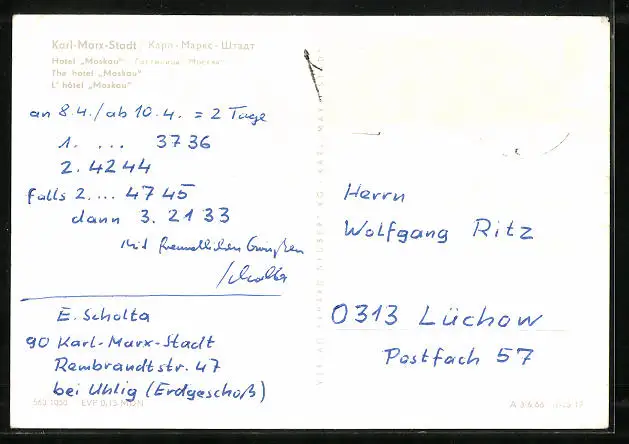 Karl-Marx-Stadt / Карл-Маркс-Штадт
Hotel „Moskau“ - Гостиница „Москва“
The hotel „Moskau“
L' hôtel „Moskau“
an 8.4./ab 10.4. = 2 Tage
1. ... 3736
2. 4244
falls 2.... 4745
dann 3. 2133
Mit freundlichen Grüßen
Scholta
E. Scholta
90 Karl-Marx-Stadt
Rembrandtstr. 47
bei Uhlig (Erdgeschoß)
EVP 0,15 MDN
Herrn
Wolfgang Ritz
0313 Lüchow
Postfach 57